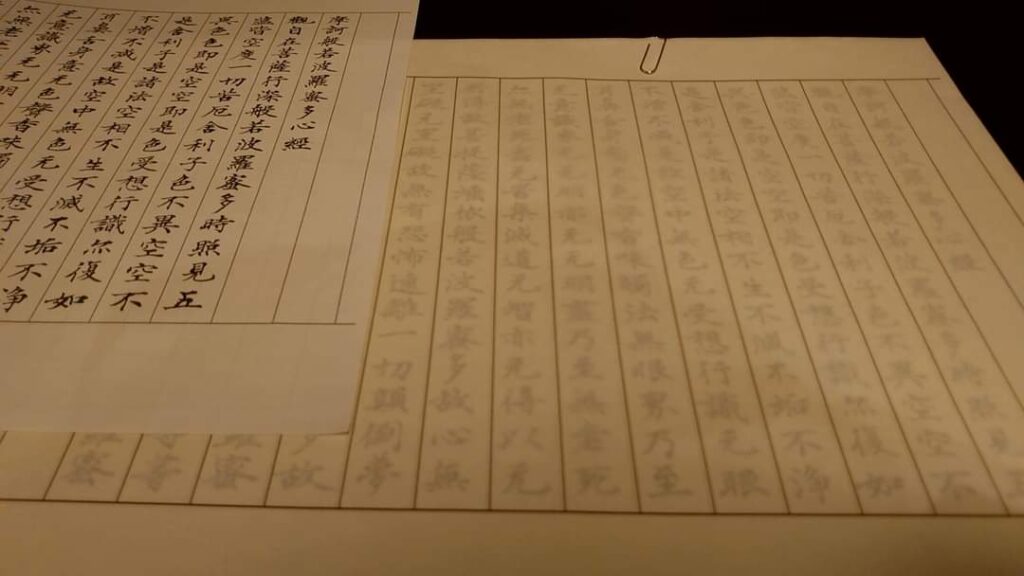 摩訶般若波羅蜜多心經
觀自在菩薩行深般若波羅蜜多時照見五
蘊皆空度一切苦厄舍利子色不異空空不
異色色即是空空即是色受想行識亦復如
是舍利子是諸法空相不生不滅不垢不净
不增不減是故空中無色无受想行
耳鼻舌身意无色聲香味
无意識界无无明
摩訶般若波羅蜜多心經
觀自在菩薩行深般若波羅蜜多時照見五
蘊皆空度一切苦厄舍利子色不異空空不
異色色即是空空即是色受想行識亦復如
是舍利子是諸法空相不生不滅不垢不净
不增不減是故空中無色无受想行識无眼
耳鼻舌身意无色聲香味觸法無眼界乃至
无意識界无无明亦无无明盡乃至無老死
亦無老死盡无苦集滅道无智亦无得以无
所得故菩提薩埵依般若波羅蜜多故心無
罣礙无罣礙故無有恐怖遠離一切顛倒夢
多故
蜜
等
蜜